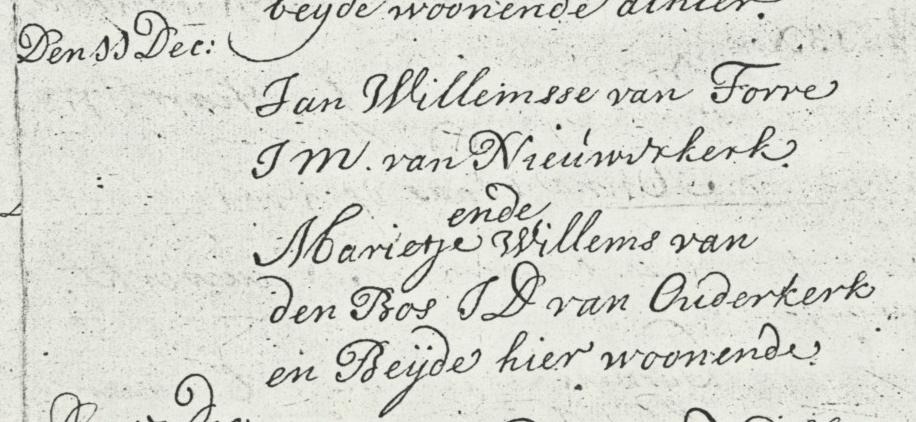 beyde woonende alhier.
Den 11 Dec:
Jan Willemsse van Forre
J M. van Nieúwerkerk.
ende
Marietje Willems van
den Bos J D van Ouderkerk
en Beÿde hier woonende.